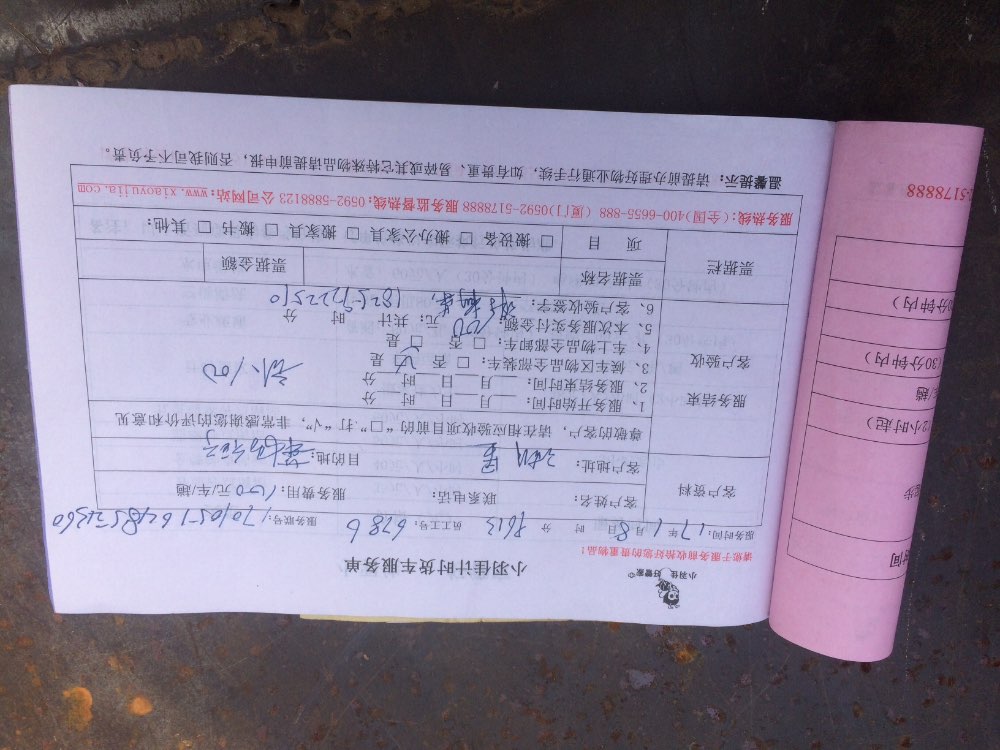 小羽佳 好管家
小羽佳计时货车服务单
请您于服务前收拾好您的贵重物品!
服务时间: 17年 1月8日 时 分 员工号: 6286 服务联号:
客户资料
客户姓名: 联系电话: 服务费用: 100元/车/趟
客户地址: 目的地:
尊敬的客户, 请在相应验收项目前的"□"打"√", 非常感谢您的评价和意见
服务结束
客户验收
1、服务开始时间: 月 日 时 分
2、服务结束时间: 月 日 时 分
3、候车区物品全部装车: □ 否 □ 是
4、车上物品全部卸车: □ 否 □ 是
5、本次服务实付金额: 100 元; 共计 时 分
6、客户验收签字
票据栏 票据名称 票据金额
项 目 □ 搬设备 □ 搬办公家具 □ 搬家具 □ 搬书 □ 其他:
服务热线:(全国)400-6655-888 (厦门)0592-5178888 服务监督热线:0592-5888123 公司网站:www.xiaoyujia.com
温馨提示: 请提前办理好物业通行手续, 如有贵重、易碎或其它特殊物品请提前申报, 否则我司不予负责。
-5178888
分钟内)
(30分钟内)
/趟
2小时起)
步
时间